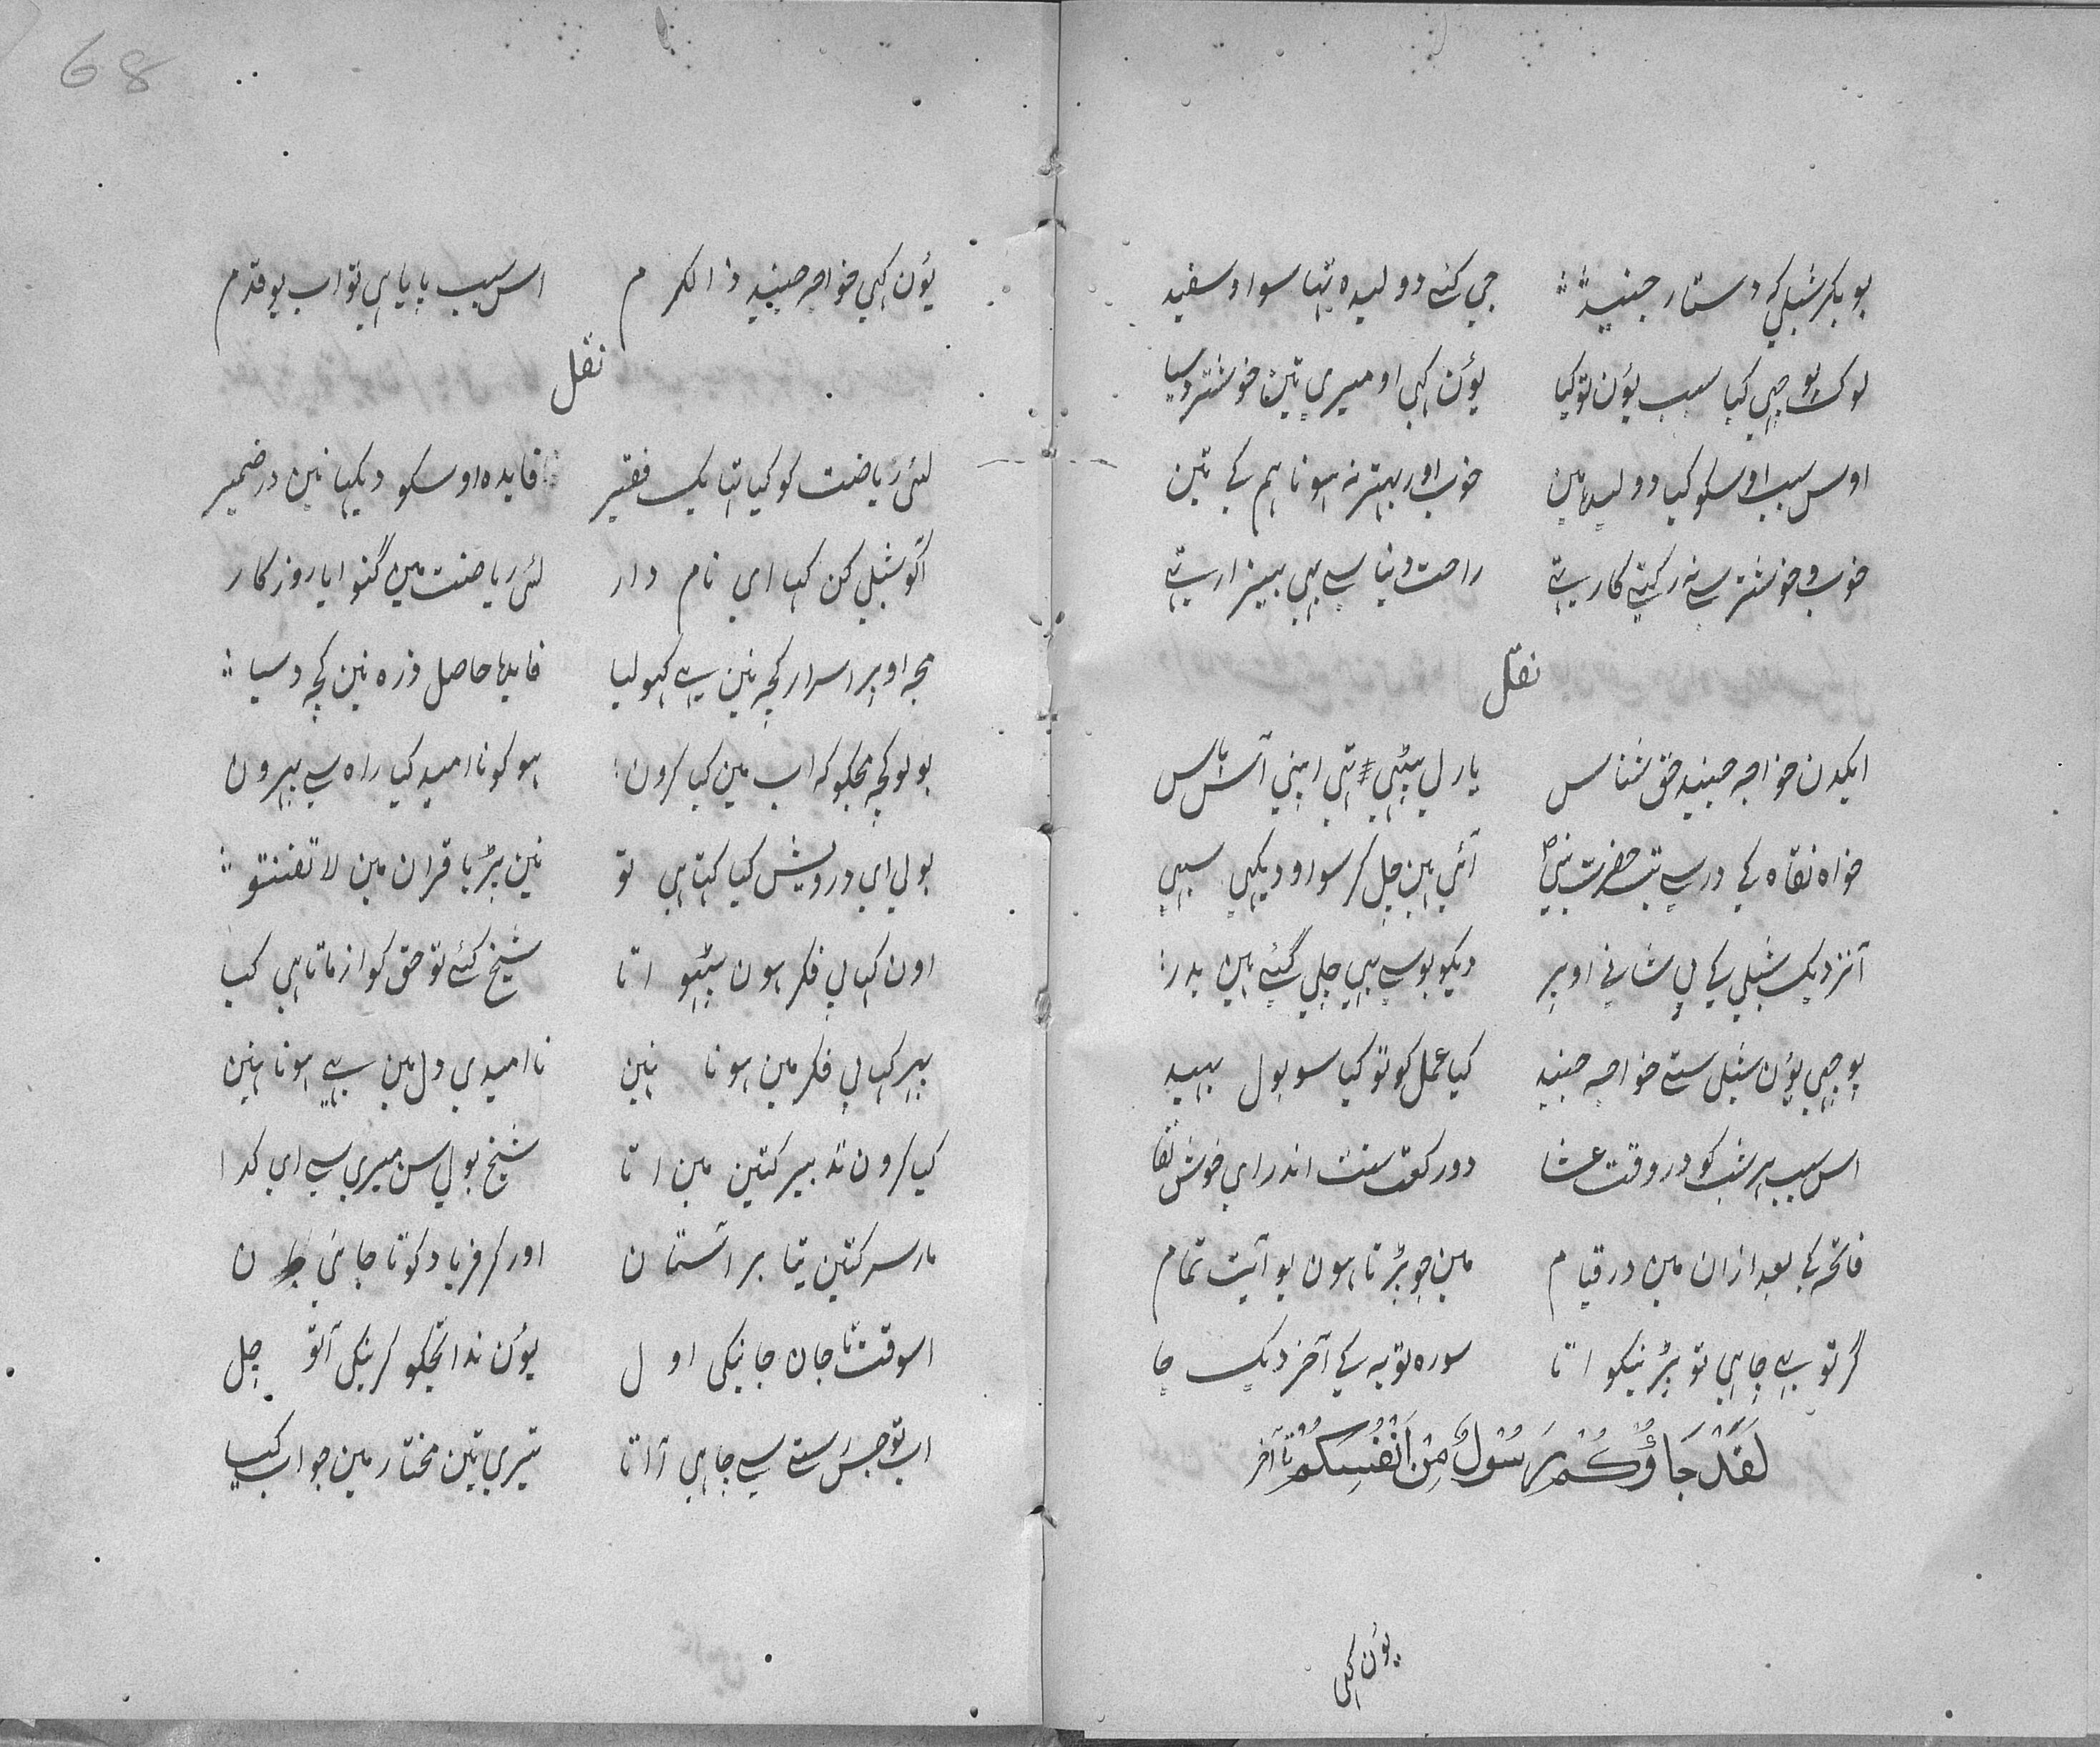 بوبکر شبلی کی دستار جنید جی کئے دو لیده تھا سوا و سفید
لوک پوچھی کیا سبب یوُن تو کیا یوُن کہی او میری تین خوشتر دسیا
اوس سبب اوسکو کیا دو لیدا مین خوب اور بہتر نہ ہونا ہم کے تین
خوب و خوشتر سے نہ رکہتے کار تے راحت دنیا سے بہی بیزار تے
نقل
ایکدن خواجہ جنید حق شناس یار ل بیٹہی تہی اپنی آس پاس
خواه نقاه کے در سے تب حضرت نبی آئی ہین چل کر سوا و دیکہی سبہی
آ نزدیک شبلی کے پیشانی اوپر دیکو بوسے بہی چلی گئے ہین بدر
پوچہی یوُن شبلی ستے خواجہ جنید کیا عمل کو تو کیا سو بول بہید
اس سبب ہر شب کو در وقت عشا دو رکعت سنت اندر ای خوش لقا
فاتحہ کے بعد ازان مین در قیام مین جو پڑتا ہون یو آیت تمام
گر تو بے چاہی تو پڑنیکو اتا سوره توبہ کے آخر دیک جا
لَقَدْ جَاؤُكُمْ رَسُوْلٌ مِنْ اَنْفُسِكُمْ تا آخر
یوُن کہی
68
یوُن کہی خواجہ جنید ذالکرم اس سبب پایا ہی تو اب یو قدم
نقل
لئی ریاضت کو کیا تہا یک فقیر فایده اوسکو دیکہیا نین در ضمیر
آکو شبلی کن کہا ای نام دار لئی ریاضت مین گنوایا روزکار
مجہ اوپر اسرار کچہ نین ہے کہولیا فایدا حاصل ذره نین کچہ دسیا
بولو کچہ مجکو کہ اب مین کیا کرون ہو کو نا امید کیا راه سے پہرون
بولی ای درویش کیا کہتا ہی تو نین پڑیا قران مین لا تقنتو
اون کہا بی فکر ہون بیٹہو اتا شیخ کئے تو حق کو ازماتا ہی کیا
پہر کہا بی فکر مین ہونا نین نا امیدی دل مین بے ہونا ہنین
کیا کرون تدبیر کتین مین اتا شیخ بولی سن میری سے ای کدا
مار سر کتین تیتا بر آستان اور کر فریاد کوتا جائی ن
اسوقت تا جان جانیکی اول یوُن ندا تجکو کرینکی آتو چل
اب تو جس ستے سے جاہی ژاتا تیری تین مختار مین جواب کیا